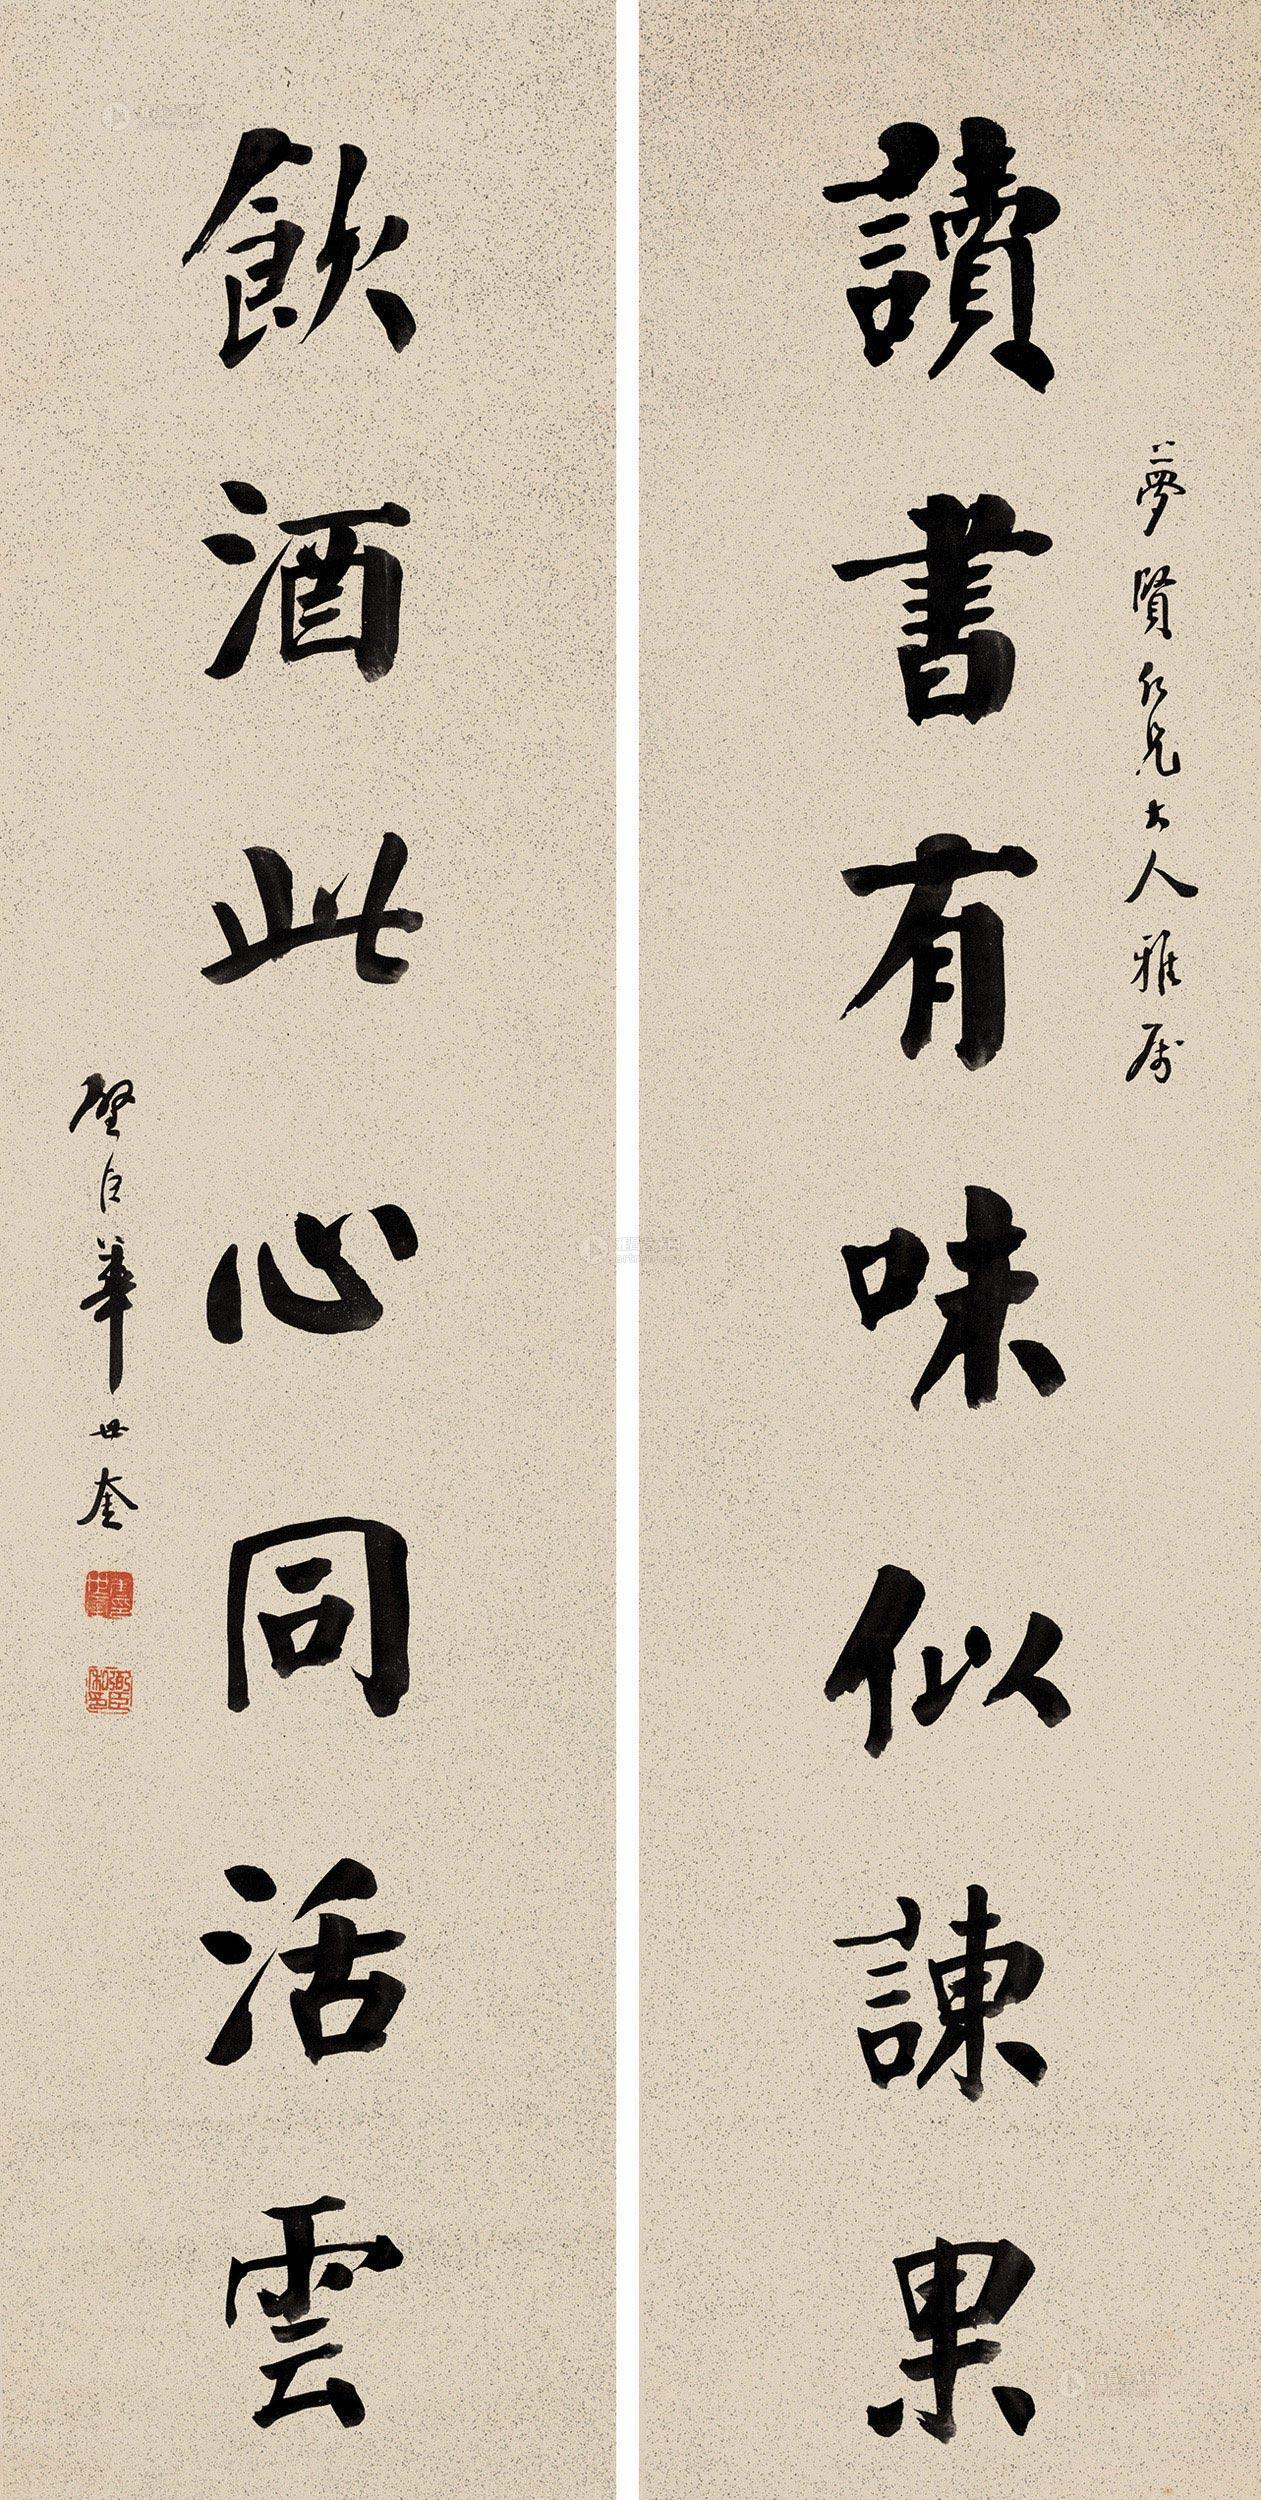 夢賢仁兄大人雅屬
讀書有味似諫果
飲酒此心同活雲
璧臣華世奎